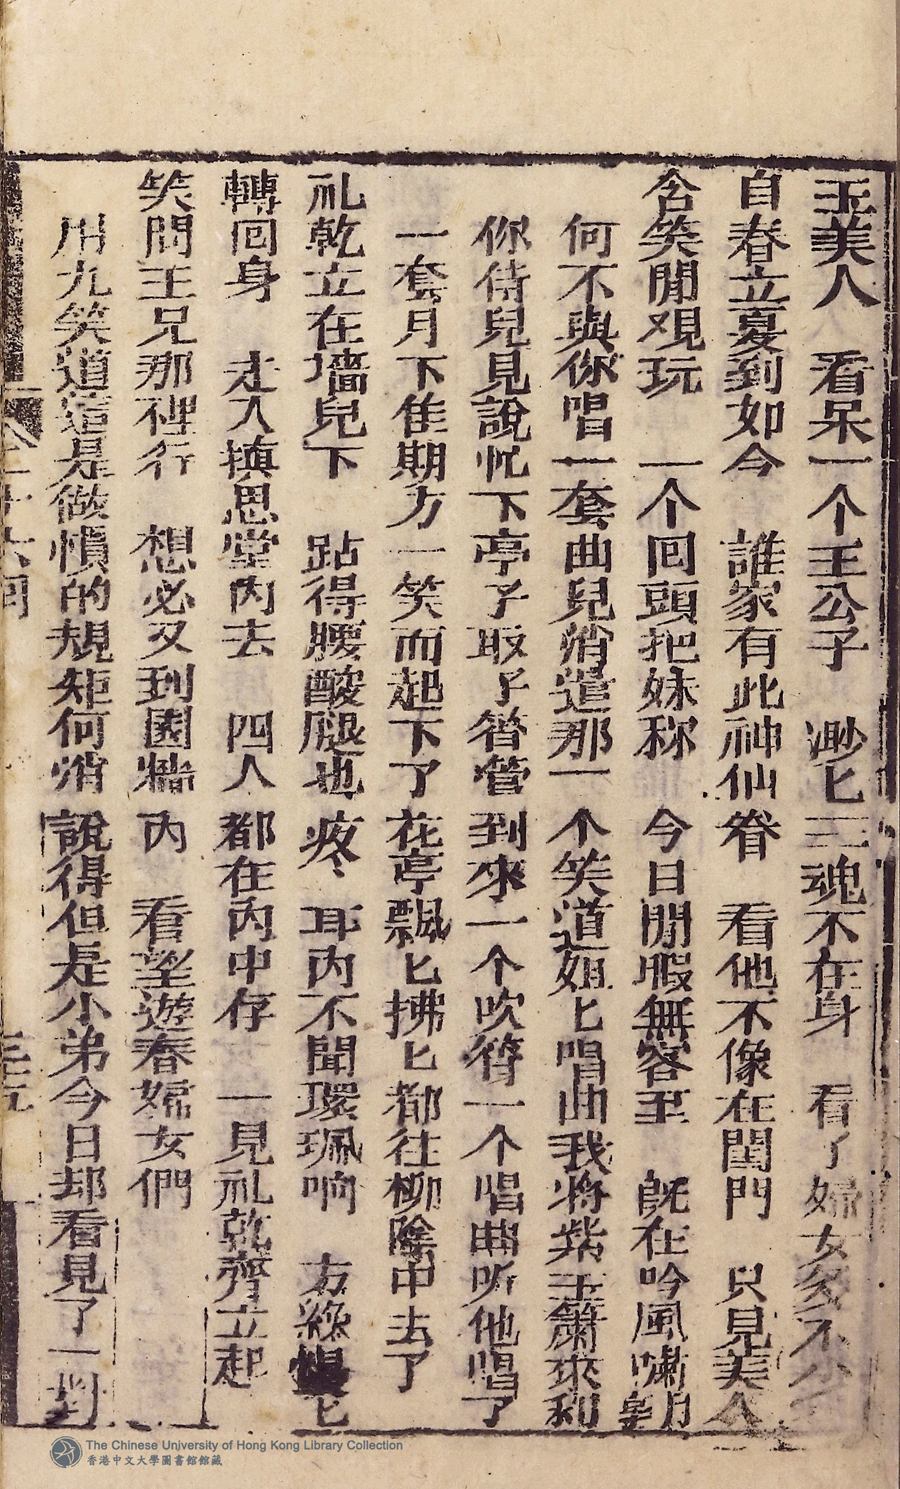 玉美人　看呆一个王公子　渺匕三魂不在身　看了婦女多不少
自春立夏到如今　誰家有此神仙眷　看他不像在閨門　只見美人
含笑閒观玩　一个回頭把妹称　今日閒暇無客至　既在吟風嘯朝
何不與你唱一套曲兒消遣那一个笑道姐匕唱曲我將紫玉簫來和
你侍兒見說忙下亭子取了簪管到來一个吹簪一个唱曲听他唱了
一套月下佳期方一笑而起下了花亭飄匕拂匕都往柳陰中去了
礼乾立在墻兒下　跕得腰酸腿也疼　耳內不聞環珮响　方纔慢匕
轉回身　走入搷思堂內去　四人都在內中存　一見礼乾齊立起
笑問王兄那裡行　想必又到園牆內　看望遊春婦女們
用九笑道這是做慣的規矩何消說得但是小弟今日却看見了一對
六回